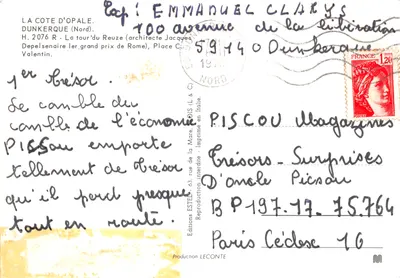 LA COTE D'OPALE.
DUNKERQUE (Nord).
H. 2076 R - La tour du Reuze (architecte Jacques
Depelsenaire (er grand prix de Rome), Place C.
Valentin.
Exp: EMMANUEL CLARYS
100 avenue de la libération
59140 Dunkerque
NORD
FRANCE
1,20
1er Trésor.
Le comble du
comble de l'économie
PISSou emporte
tellement de Trésor
qu'il perd presque
tout en route.
Editions ESTEL, 63, rue de la Mare, PARIS (L & C)
Reproduction interdite - Imprimé en Italie
PISCOU Magazines
Trésors-Surprises
D'oncle Picsou
BP 197.17. 75.764
Paris Cédex 16
Production LECONTE